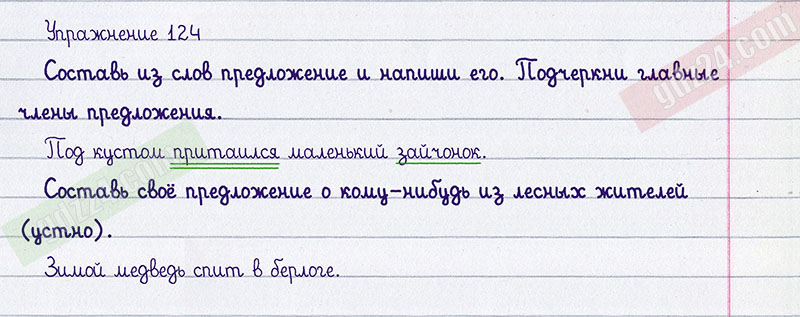 Упражнение 124
Составь из слов предложение и напиши его. Подчеркни главные
члены предложения.
Под кустом притаился маленький зайчонок.
Составь своё предложение о кому-нибудь из лесных жителей
(устно).
Зимой медведь спит в берлоге.
gdz24.com
gdz24.com